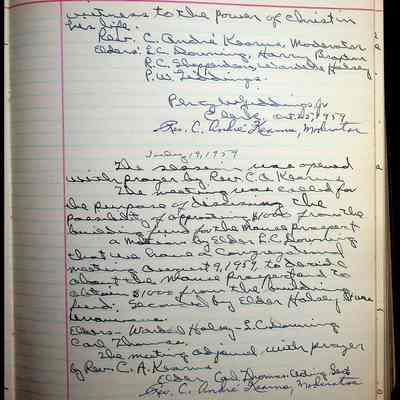 witness to the power of Christ in
his life.
Rev. C. André Kearns, Moderator
Elders: L.C. Downing, Harry
R.C. Wardell Halsey
P.W. Giddings.
Percy W Giddings, Jr
Clerk, Oct. 25, 1959
Rev. C. André Kearns, Moderator
19, 1959
The session was opened
with prayer by Rev. C.A. Kearns
The meeting was called for
the purpose of discussing the
possibility of from the
building fund for the Manse
a motion by Elder L.C. Downing
that we have a Congregational
meeting August 9, 1959 to decide
about the Manse and to
obtain $1000 from the building
fund. Seconded by Elder Halsey
Elders - Wardell Halsey - L.C. Downing
Carl Thomas.
The meeting adjourned with prayer
by Rev. C. A. Kearns
Elder Carl Thomas. Acting
Rev. C. André Kearns, Moderator